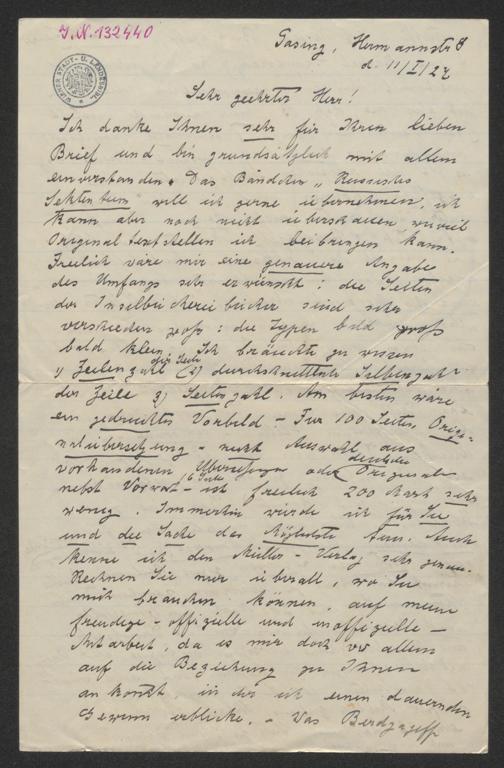 J.N. 132440
WIENER STADT- U. LANDESBIBL.
Pasing, Hermannstr 8
d. 11/I/27
Sehr geehrter Herr!
Ich danke Ihnen sehr für Ihren lieben
Brief und bin grundsätzlich mit allem
einverstanden. Das Bändchen „Russisches
Sektentum" will ich gerne übernehmen, ich
kann aber noch nicht überschauen, wieviel
Original textstellen ich beibringen kann.
Freilich wäre mir eine genauere Angabe
des Umfangs sehr erwünscht: die Seiten
der Inselbücherei bücher sind sehr
verschieden groß: die Typen bald groß
bald klein. Ich bräuchte zu wissen
1) Zeilenzahl der Seite 2) durchschnittliche Silbenzahl
der Zeile 3) Seitenzahl. Am besten wäre
ein gedrucktes Vorbild – Für 100 Seiten, Origi-
nalübersetzung – nicht Auswahl aus
vorhandenen Übersetzungen oder deutschen Originalen
nebst Vorwort 16 Seiten – ist freilich 200 Mark sehr
wenig. Immerhin würde ich für Sie
und die Sache das Möglichste tun. Auch
kenne ich den Müller-Verlag sehr genau.
Rechnen Sie nur überall, wo Sie
mich brauchen können, auf meine
freudige – offizielle und inoffizielle –
Mitarbeit, da es mir doch vor allem
auf die Beziehung zu Ihnen
ankommt, in der ich einen dauernden
Gewinn erblicke. – Das Berdjajeff